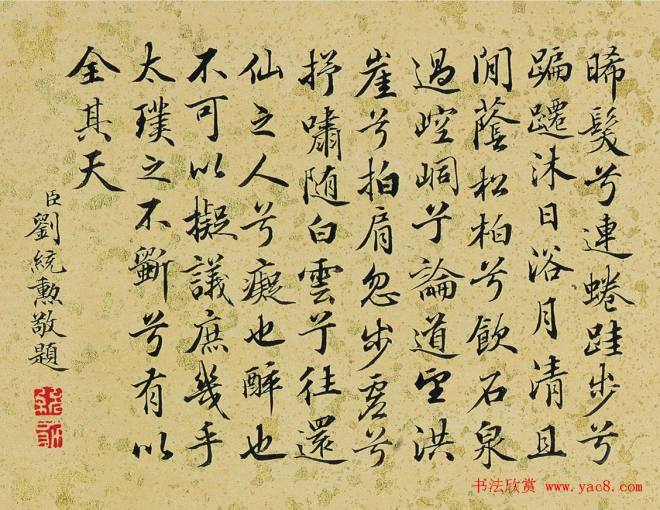 晞髮兮連蜷跬步兮
蹁躚沐日浴月清且
閒蔭松柏兮飲石泉
過崆峒兮論道望洪
崖兮拍肩忽步虛兮
抒嘯随白雲兮往還
仙之人兮癡也醉也
不可以擬議庶幾乎
太璞之不斲兮有以
全其天
臣劉統勲敬題
书法欣赏 www.yac8.com